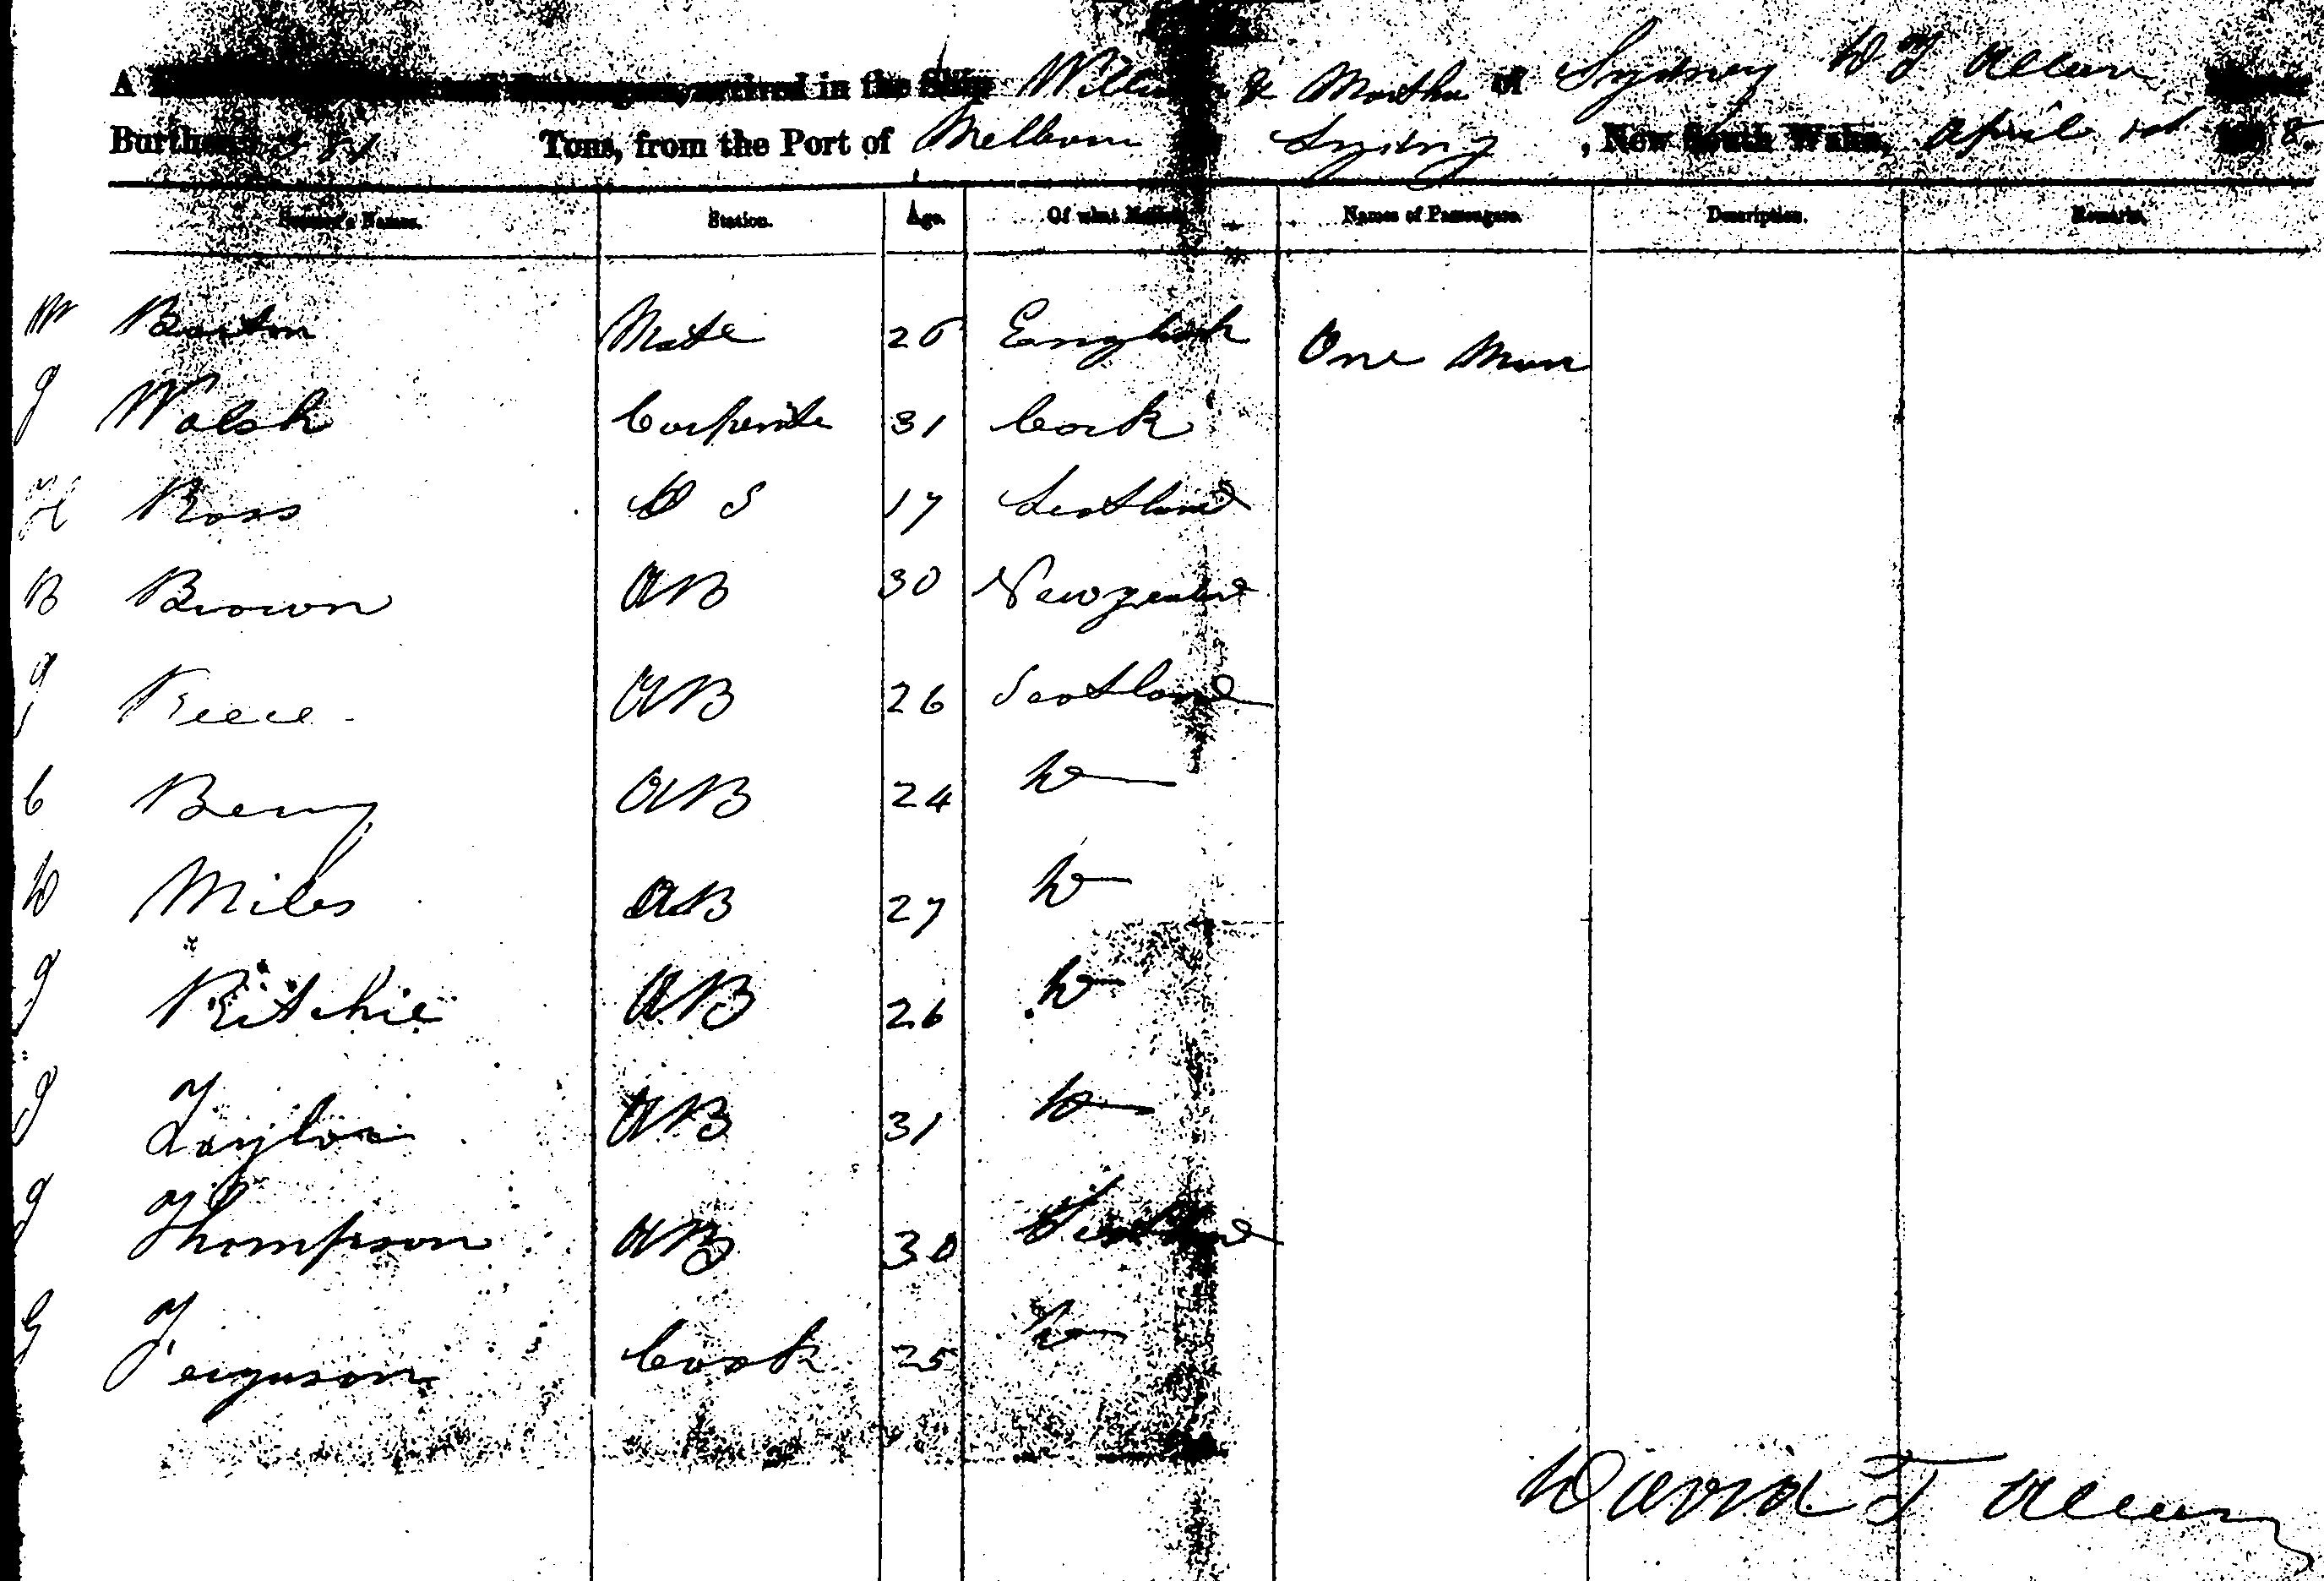 A arrived in the Ship William & Martha of Sydney D T Allen
Burthen Tons, from the Port of Melbourn Sydney , New South Wales, April 1st 8
Names. Station. Age. Of what Nation. Names of Passengers. Description. Remarks.
W Barton Mate 26 English One Man
J Walsh Carpenter 31 Cork
H Ross O S 17 Scotland
B Brown AB 30 Newzealand
J Reece AB 26 Scotland
C Berry AB 24 Do
D Miles AB 27 Do
J Ritchie AB 26 Do
J Taylor AB 31 Do
J Thompson AB 30 Scotland
G Ferguson Cook 25 Do
David T Allen